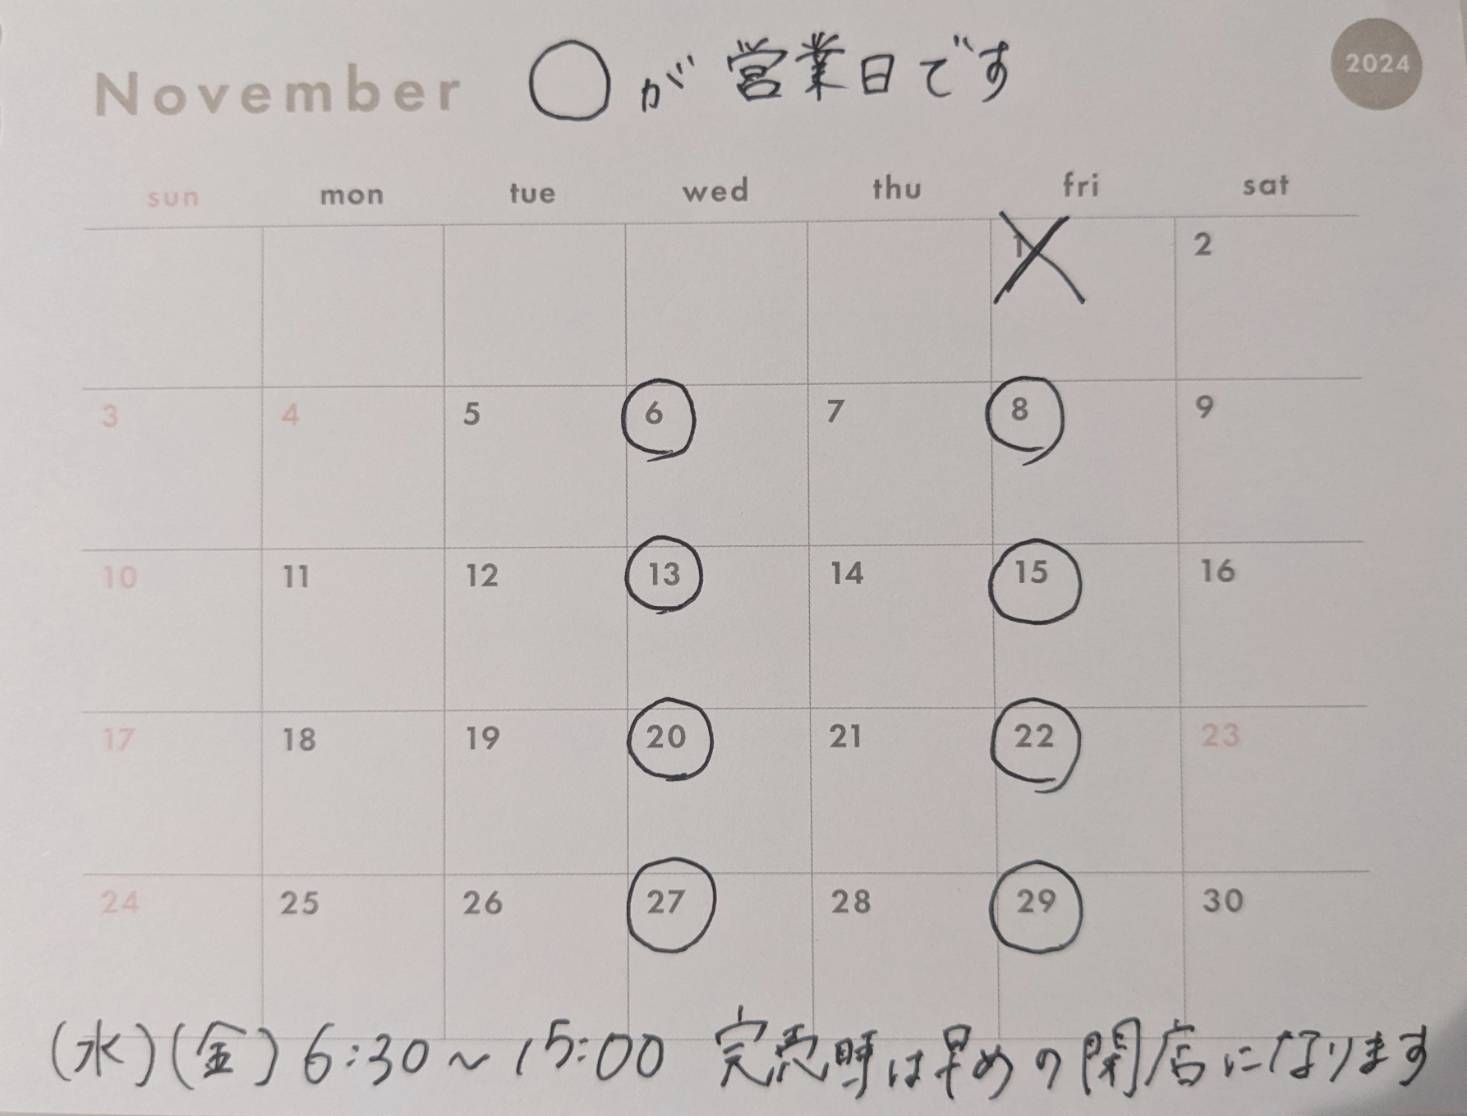 November ○が営業日です 2024
sun mon tue wed thu fri sat
1 2
3 4 5 6 7 8 9
10 11 12 13 14 15 16
17 18 19 20 21 22 23
24 25 26 27 28 29 30
(水)(金) 6:30～15:00 完売時は早めの閉店になります